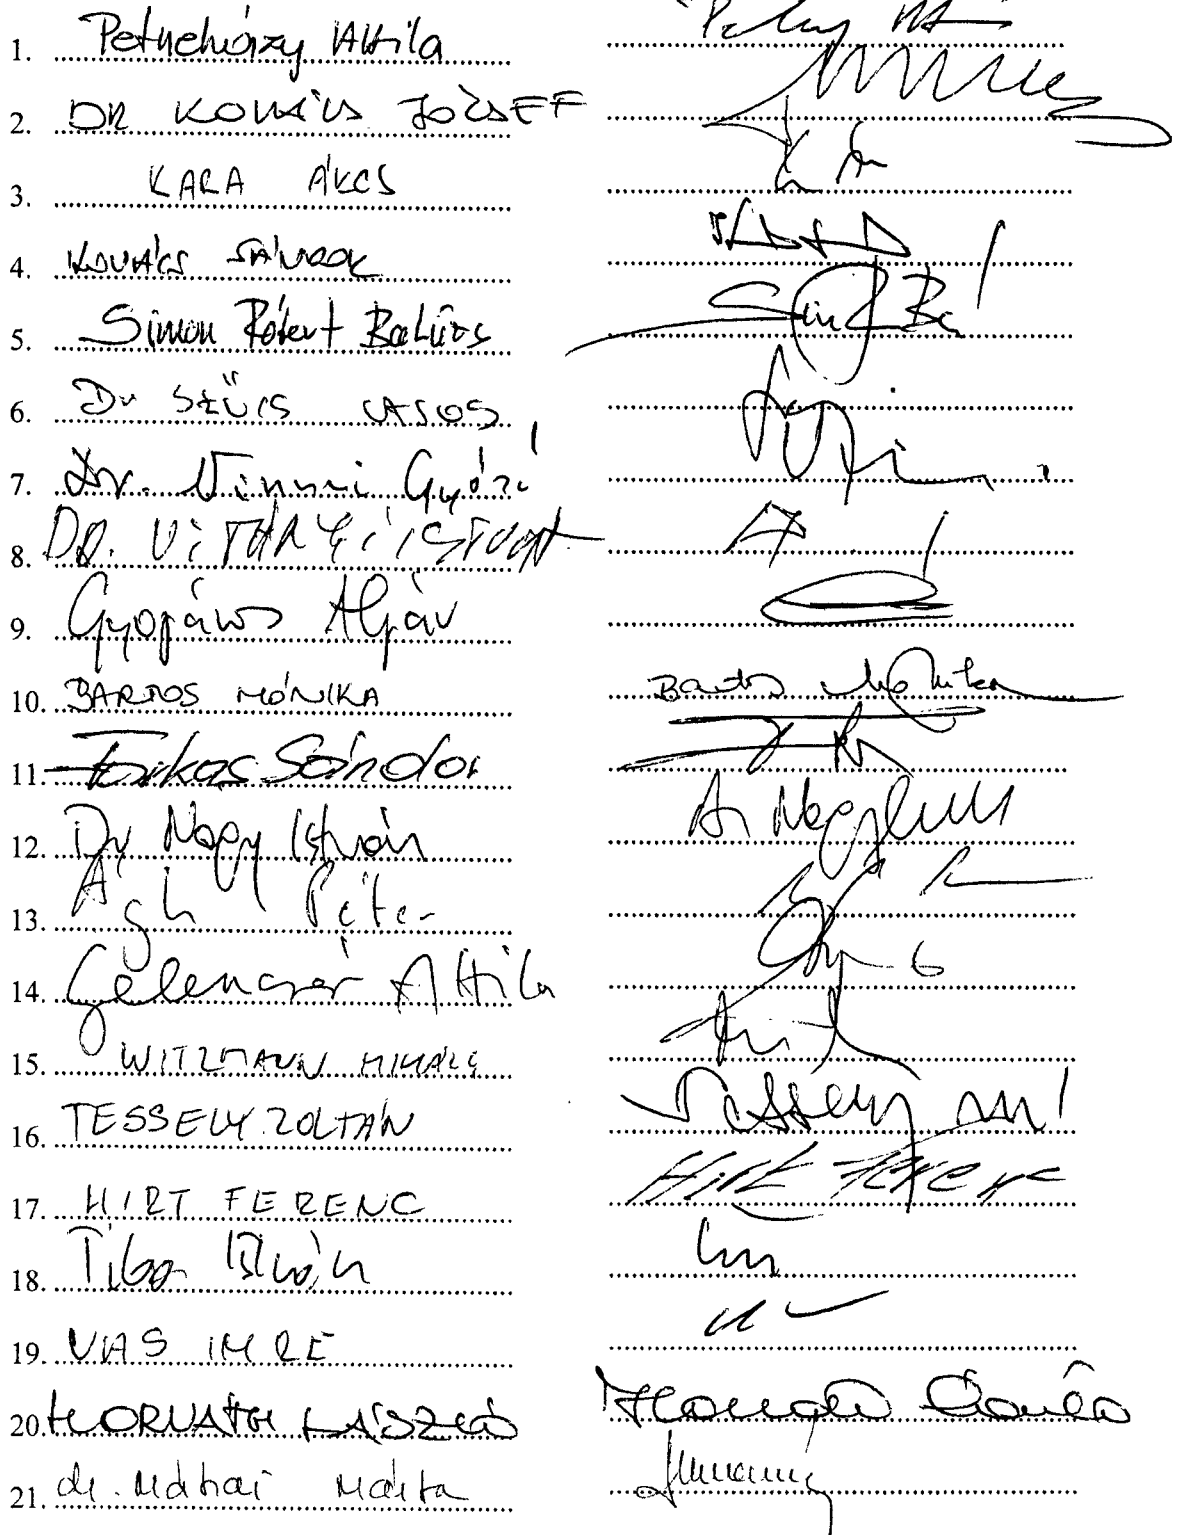 1. Petneházy Attila
2. DR KOVÁCS JÓZSEF
3. KARA ÁKOS
4. KOVÁCS SÁNDOR
5. Simon Róbert Balázs
6. Dr SZŰCS LAJOS
7. Dr. Vinnai Győző
8. DR. VITÁNYI ISTVÁN
9. Gyopáros Alpár
10. BARTOS MÓNIKA Bartos Mónika
11. Farkas Sándor
12. Dr Nagy István Dr Nagy István
13. Ágh Péter
14. Gelencsér Attila
15. WITZMANN MIHÁLY
16. TESSELY ZOLTÁN Tessely
17. HIRT FERENC Hirt Ferenc
18. Tiba István
19. VAS IMRE
20. HORVÁTH LÁSZLÓ Horváth László
21. dr. Mátrai Márta